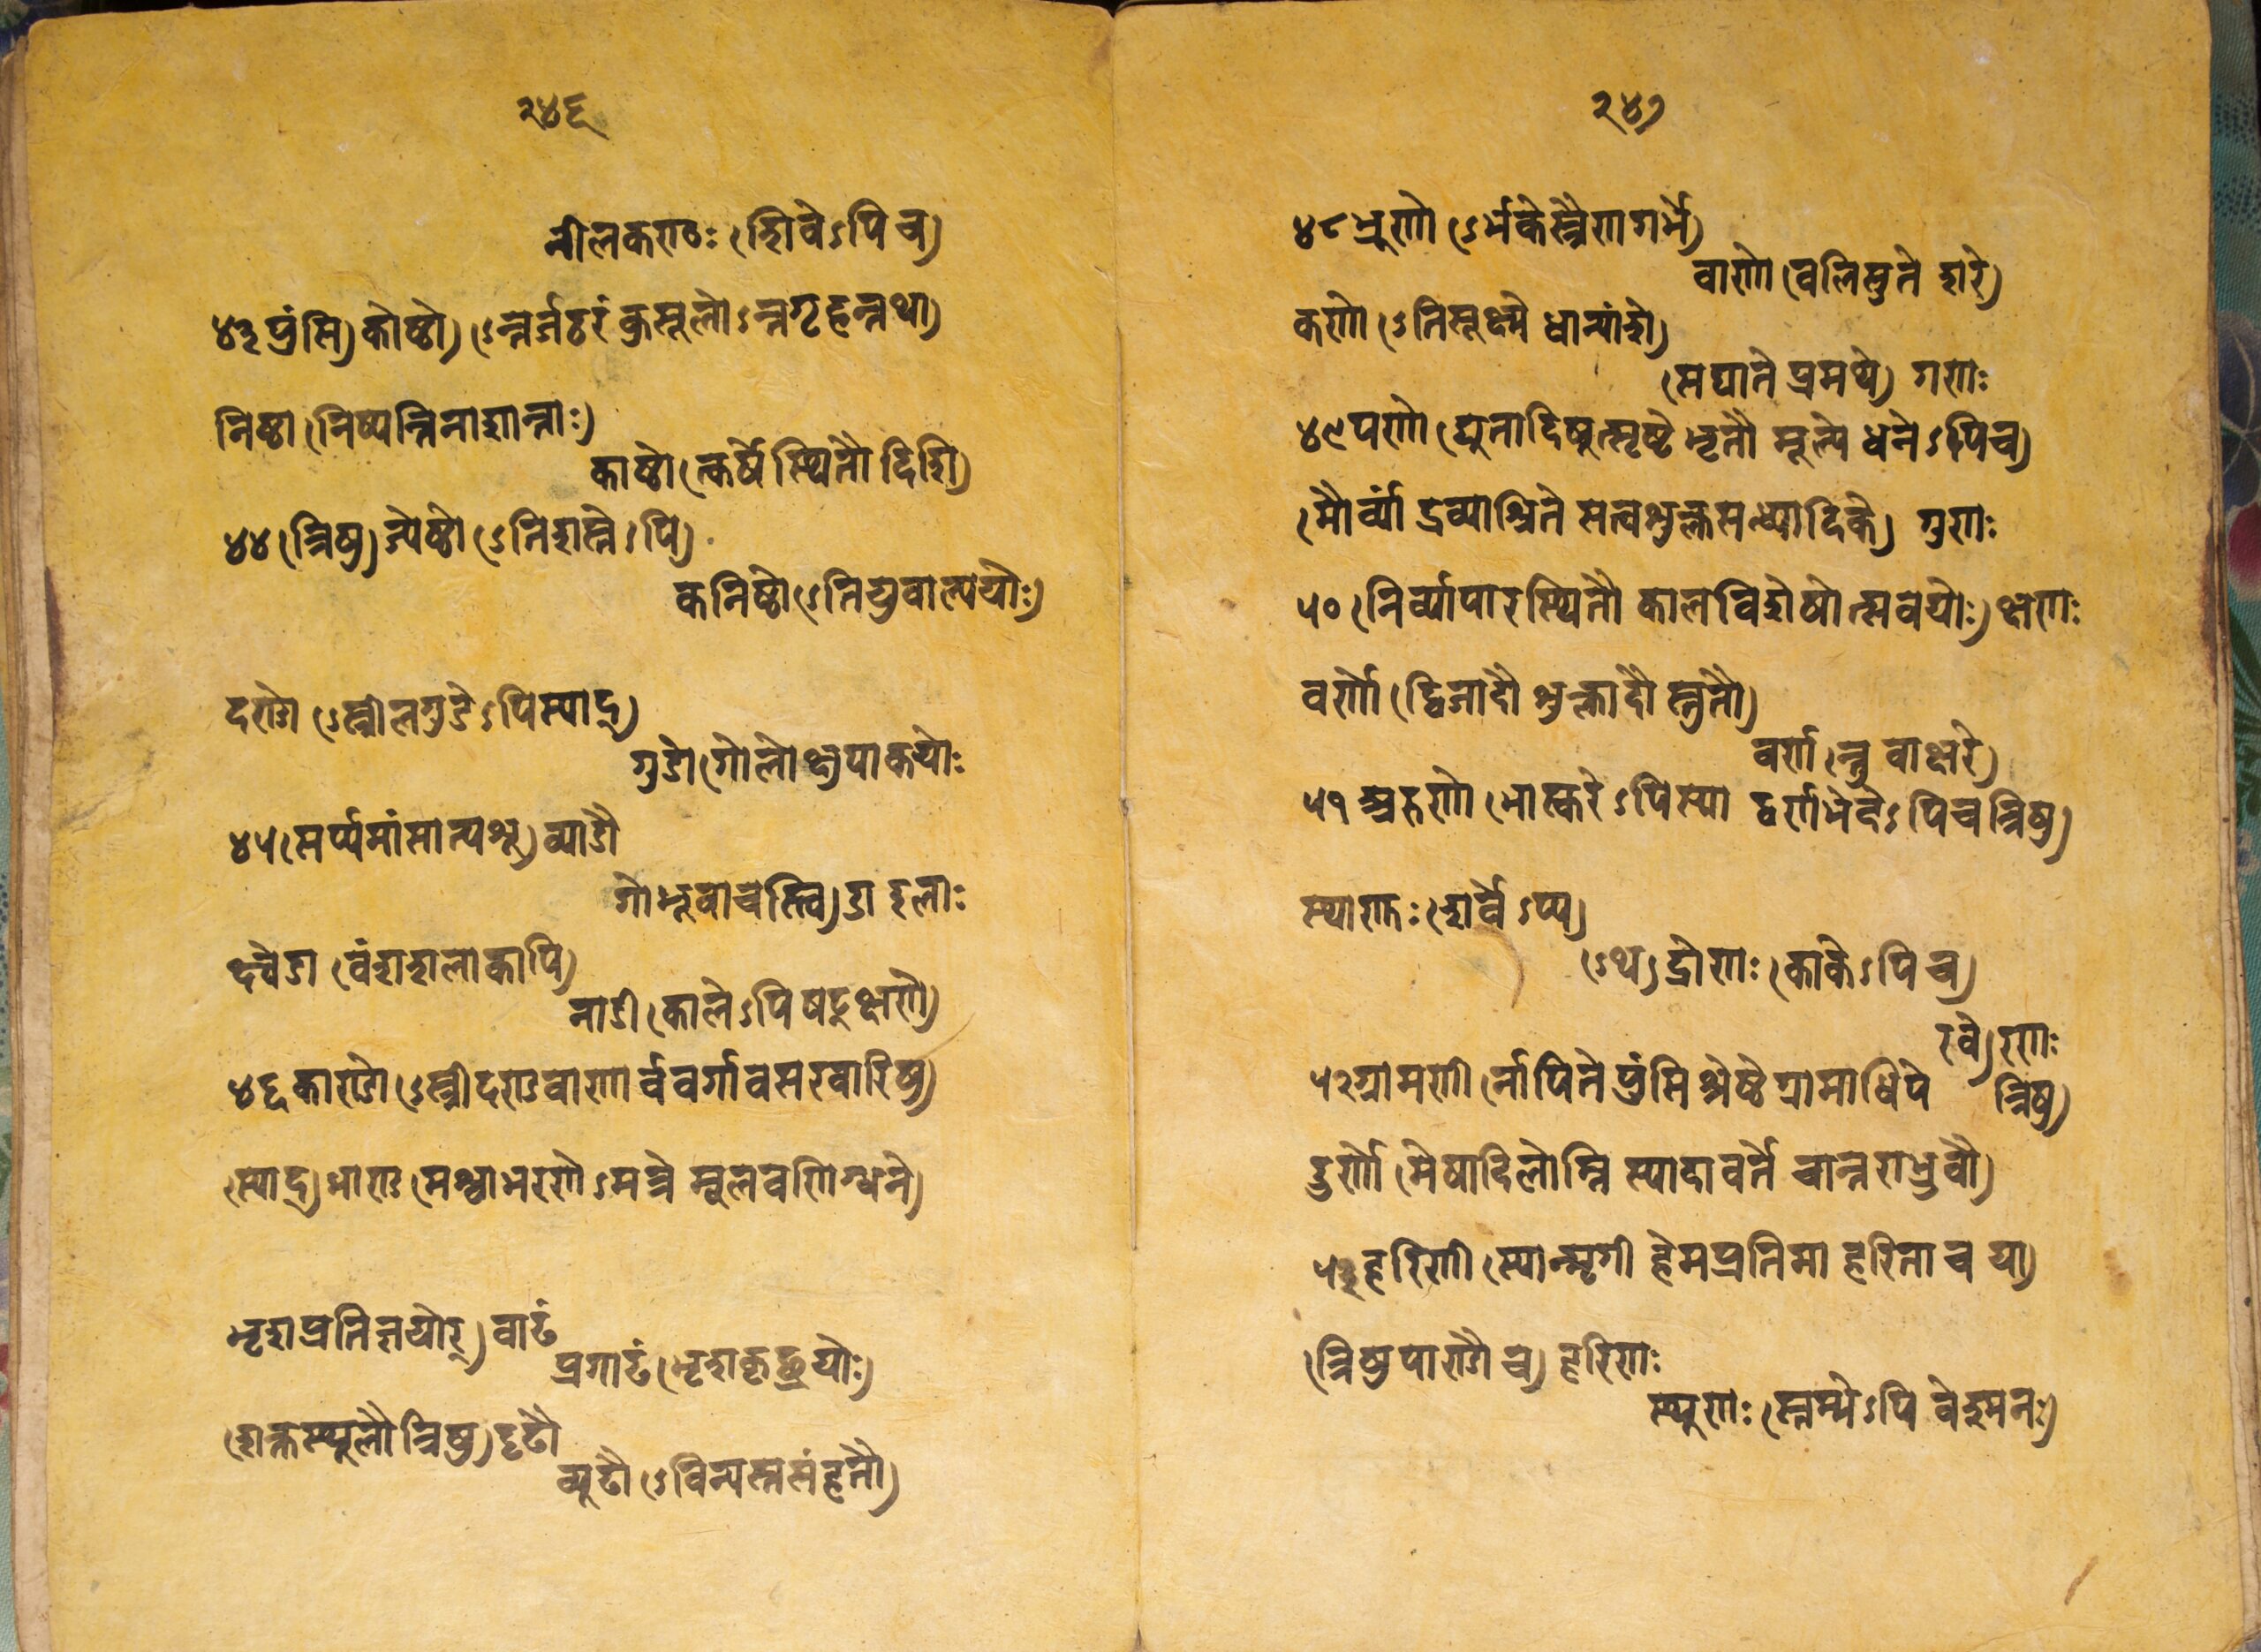 २४६
नीलकण्ठः शिवेऽपि च)
४३ पुंसि) कोष्ठो) ऽन्तर्जठरं कुसूलोऽन्तर्गृहन्तथा)
निष्ठा निष्पत्तिनाशान्ताः)
काष्ठोत्कर्षे स्थितौ दिशि)
४४ त्रिषु) ज्येष्ठो ऽतिशस्तेऽपि)
कनिष्ठोऽतियुवाल्पयोः)
दण्डो ऽस्त्री लगुडेऽपि स्याद्)
गुडो गोलेक्षुपाकयोः
४५ सर्प्पमांसात्पशू) व्याडौ
गोभूवाचस्त्वि) डा इलाः
क्ष्वेडा वंशशलाकापि)
नाडी कालेऽपि षट्क्षणे)
४६ काण्डो ऽस्त्री दण्डवाणार्ववर्गावसरवारिषु)
स्याद्) भाण्ड मश्वाभरणेऽमत्रे मूलवणिग्धने)
भृशप्रतिज्ञयोर्) वाढं
प्रगाढं भृशकृछ्रयोः)
शक्तस्थूलौ त्रिषु) दृढौ
व्यूढौ ऽविन्यस्तसंहतौ)
२४७
४८ भ्रूणो ऽर्भके स्त्रैणगर्भे)
वाणो वलिसुते शरे)
कणो ऽतिसूक्ष्मे धान्यांशे)
सघाते प्रमथे) गणः
४९ पणो द्युतादिषुत्सृष्टे भृतौ मूल्ये धनेऽपि च)
मौर्व्यां द्रव्याश्रिते सत्वशुक्लसन्ध्यादिके) गुणः
५० निर्व्यापारस्थितौ कालविशेषोत्सवयोः) क्षणः
वर्णो द्विजादौ शुक्लादौ स्तुतौ)
वर्णन्तु वाक्षरे)
५१ अरुणो भास्करेऽपि स्या द्वर्णभेदेऽपि च त्रिषु)
स्थाणुः शर्वेऽप्य)
ऽथ) द्रोणः काकेऽपि च)
रवे) रणः
५२ ग्रामणी र्नापिते पुंसि श्रेष्ठे ग्रामाधिपे त्रिषु)
ऊर्णो मेषादिलोम्नि स्यादावर्ते चान्तराभ्रुवौ)
५३ हरिणी स्यान्मृगी हेमप्रतिमा हरिता च या)
त्रिषु पाण्डौ च) हरिणः
स्थुणः स्तम्भेऽपि वेश्मनः)